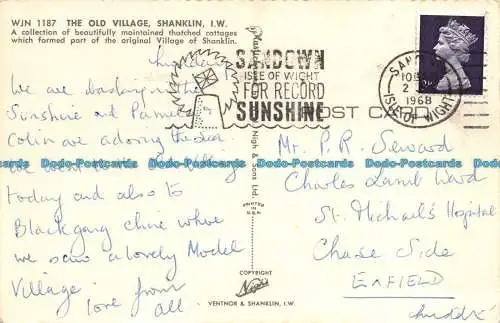 WJN 1187 THE OLD VILLAGE, SHANKLIN, I.W.
A collection of beautifully maintained thatched cottages
which formed part of the original Village of Shanklin.
SANDOWN
ISLE OF WIGHT
FOR RECORD
SUNSHINE
1968
ISLE OF WIGHT
POST CARD
We are basking in the
Sunshine and Pamela
Colin are adoring the sea
We went to
today and also to
Blackgang Chine where
we saw a lovely Model
Village. love from
all
Nigh & Sons Ltd.
PRINTED
COPYRIGHT
Nigh
VENTNOR & SHANKLIN, I.W.
Mr. P. R. Seward
Charles Lamb Ward
St. Michael's Hospital
Chase Side
ENFIELD
Middx
Dodo-Postcards Dodo-Postcards Dodo-Postcards Dodo-Postcards